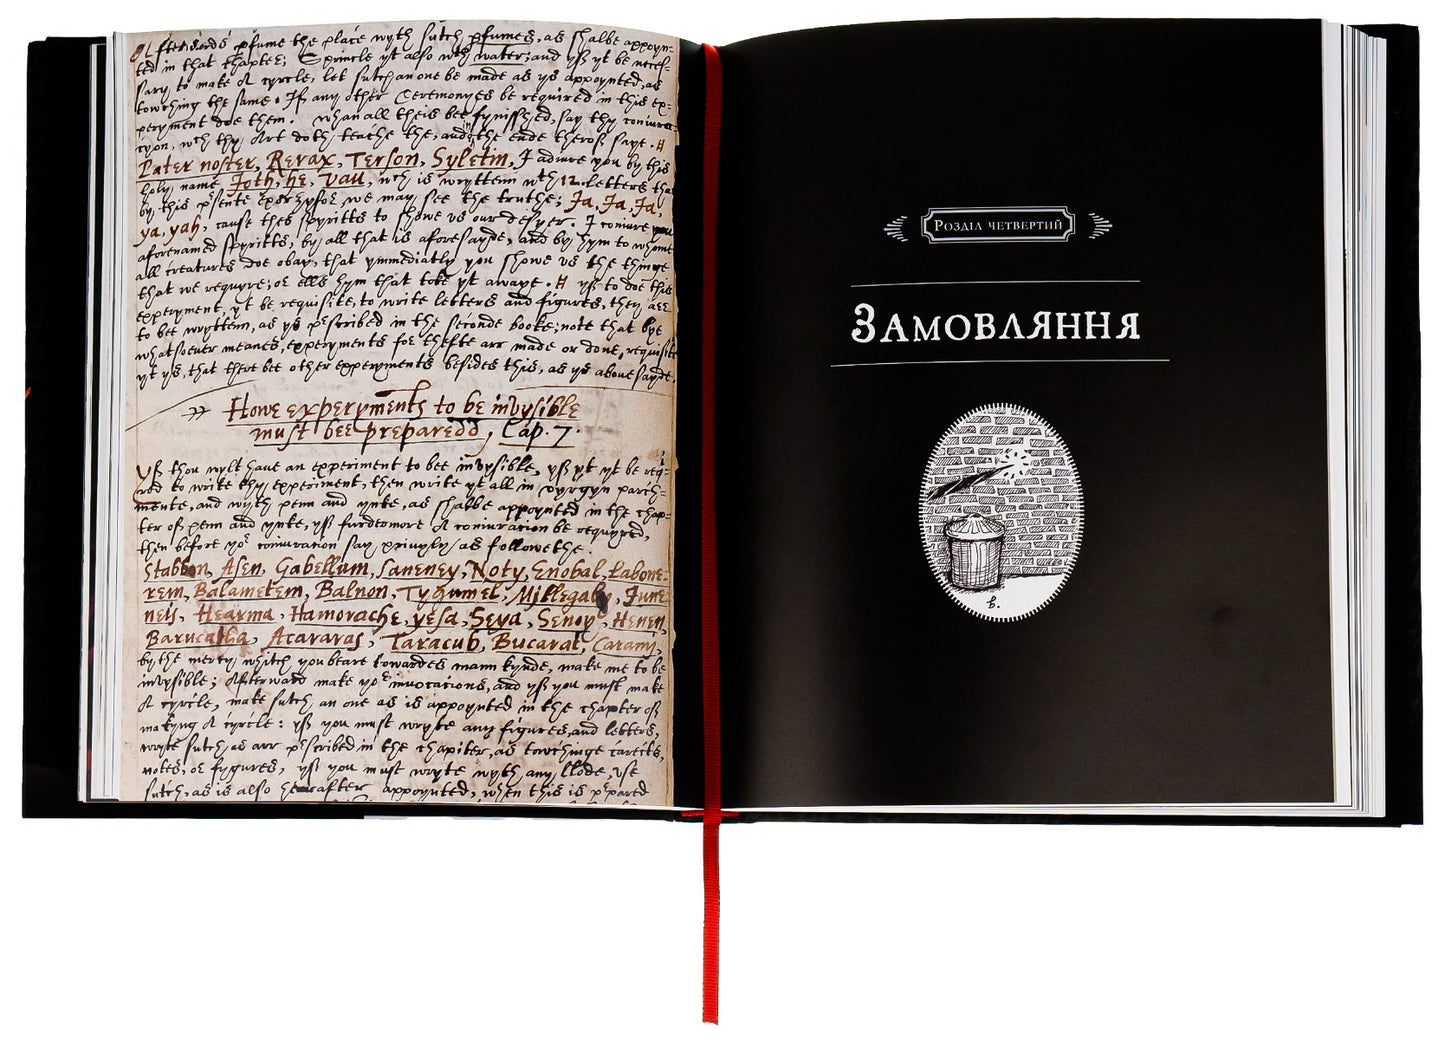 Afterwards pfume the place wyth sutch pfumes, as shalbe appoyn-
ted in that Chapter; Sprincle yt also wth water; and yff yt be neces-
sary to make A cyrcle, let sutch an one be made as ys appoynted, as
towching the same. If any other Ceremonyes be required in this ex-
peryment doe them. whan all theis bee fynisshed, say thy coniura-
cyon, wch thy Art doth teache the, and in the ende therof saye.
Pater noster, Rerax, Terson, Syletin, I adiure you by this
holy name Joth, he, vau, wch is wryttenn wth 12 letters that
by this psente experyment we may see the truthe; Ja, Ja, Ja,
ya, yah, cause thes spyritts to showe us our desyer. I coniure you
aforenamed spyritts, by all that is aforesayde, and by hym to whome
all creatures doe obay, that ymmediatly you showe us the thinge
that we requyre; or ells hym that toke yt awaye. yff to doe this
experyment, yt be requisite, to write letters and figures, they are
to bee wryttenn, as ys pscribed in the seconde booke; note that bye
whatsoever meanes, experyments for thefte are made or done, requisite
yt ys, that there bee other experyments besides this, as ys abovesayde.
Howe experyments to be invysible
must bee preparedd, Cap. 7.
Yff thou wylt have an experiment to bee invysible, yff yt be requi-
red to write thy experiment, then write yt all in vyrgyn parch-
mente, and wyth penn and ynke, as shalbe appoynted in the chap-
ter of penn and ynke, yff furdermore A coniuracion be requyred,
then before yor coniuracion say pryvyly as followethe.
Stabbon, Asen, Gabellum, Saneney, Noty, Enobal, Labone-
rem, Balametem, Balnon, Tygumel, Millegaly, June-
neis, Hearma, Hamorache, yesa, Seya, Senoy, Henen,
Barucatha, Acararas, Taracub, Bucarat, Caramy,
by the mercy whitch you beare towardes mann kynde, make me to be
invysible; Afterward make yor invocacions, and yff you must make
A cyrcle, make sutch an one as is appoynted in the chapter off
makyng A cyrcle: yff you must wryte any figures, and letters,
wryte sutch as are pscribed in the chapiter, as towchinge carects,
notes, or fygures, yff you must wryte wyth any blode, use
sutch, as is also hearafter appoynted, when this is pepared
Розділ четвертий
Замовляння